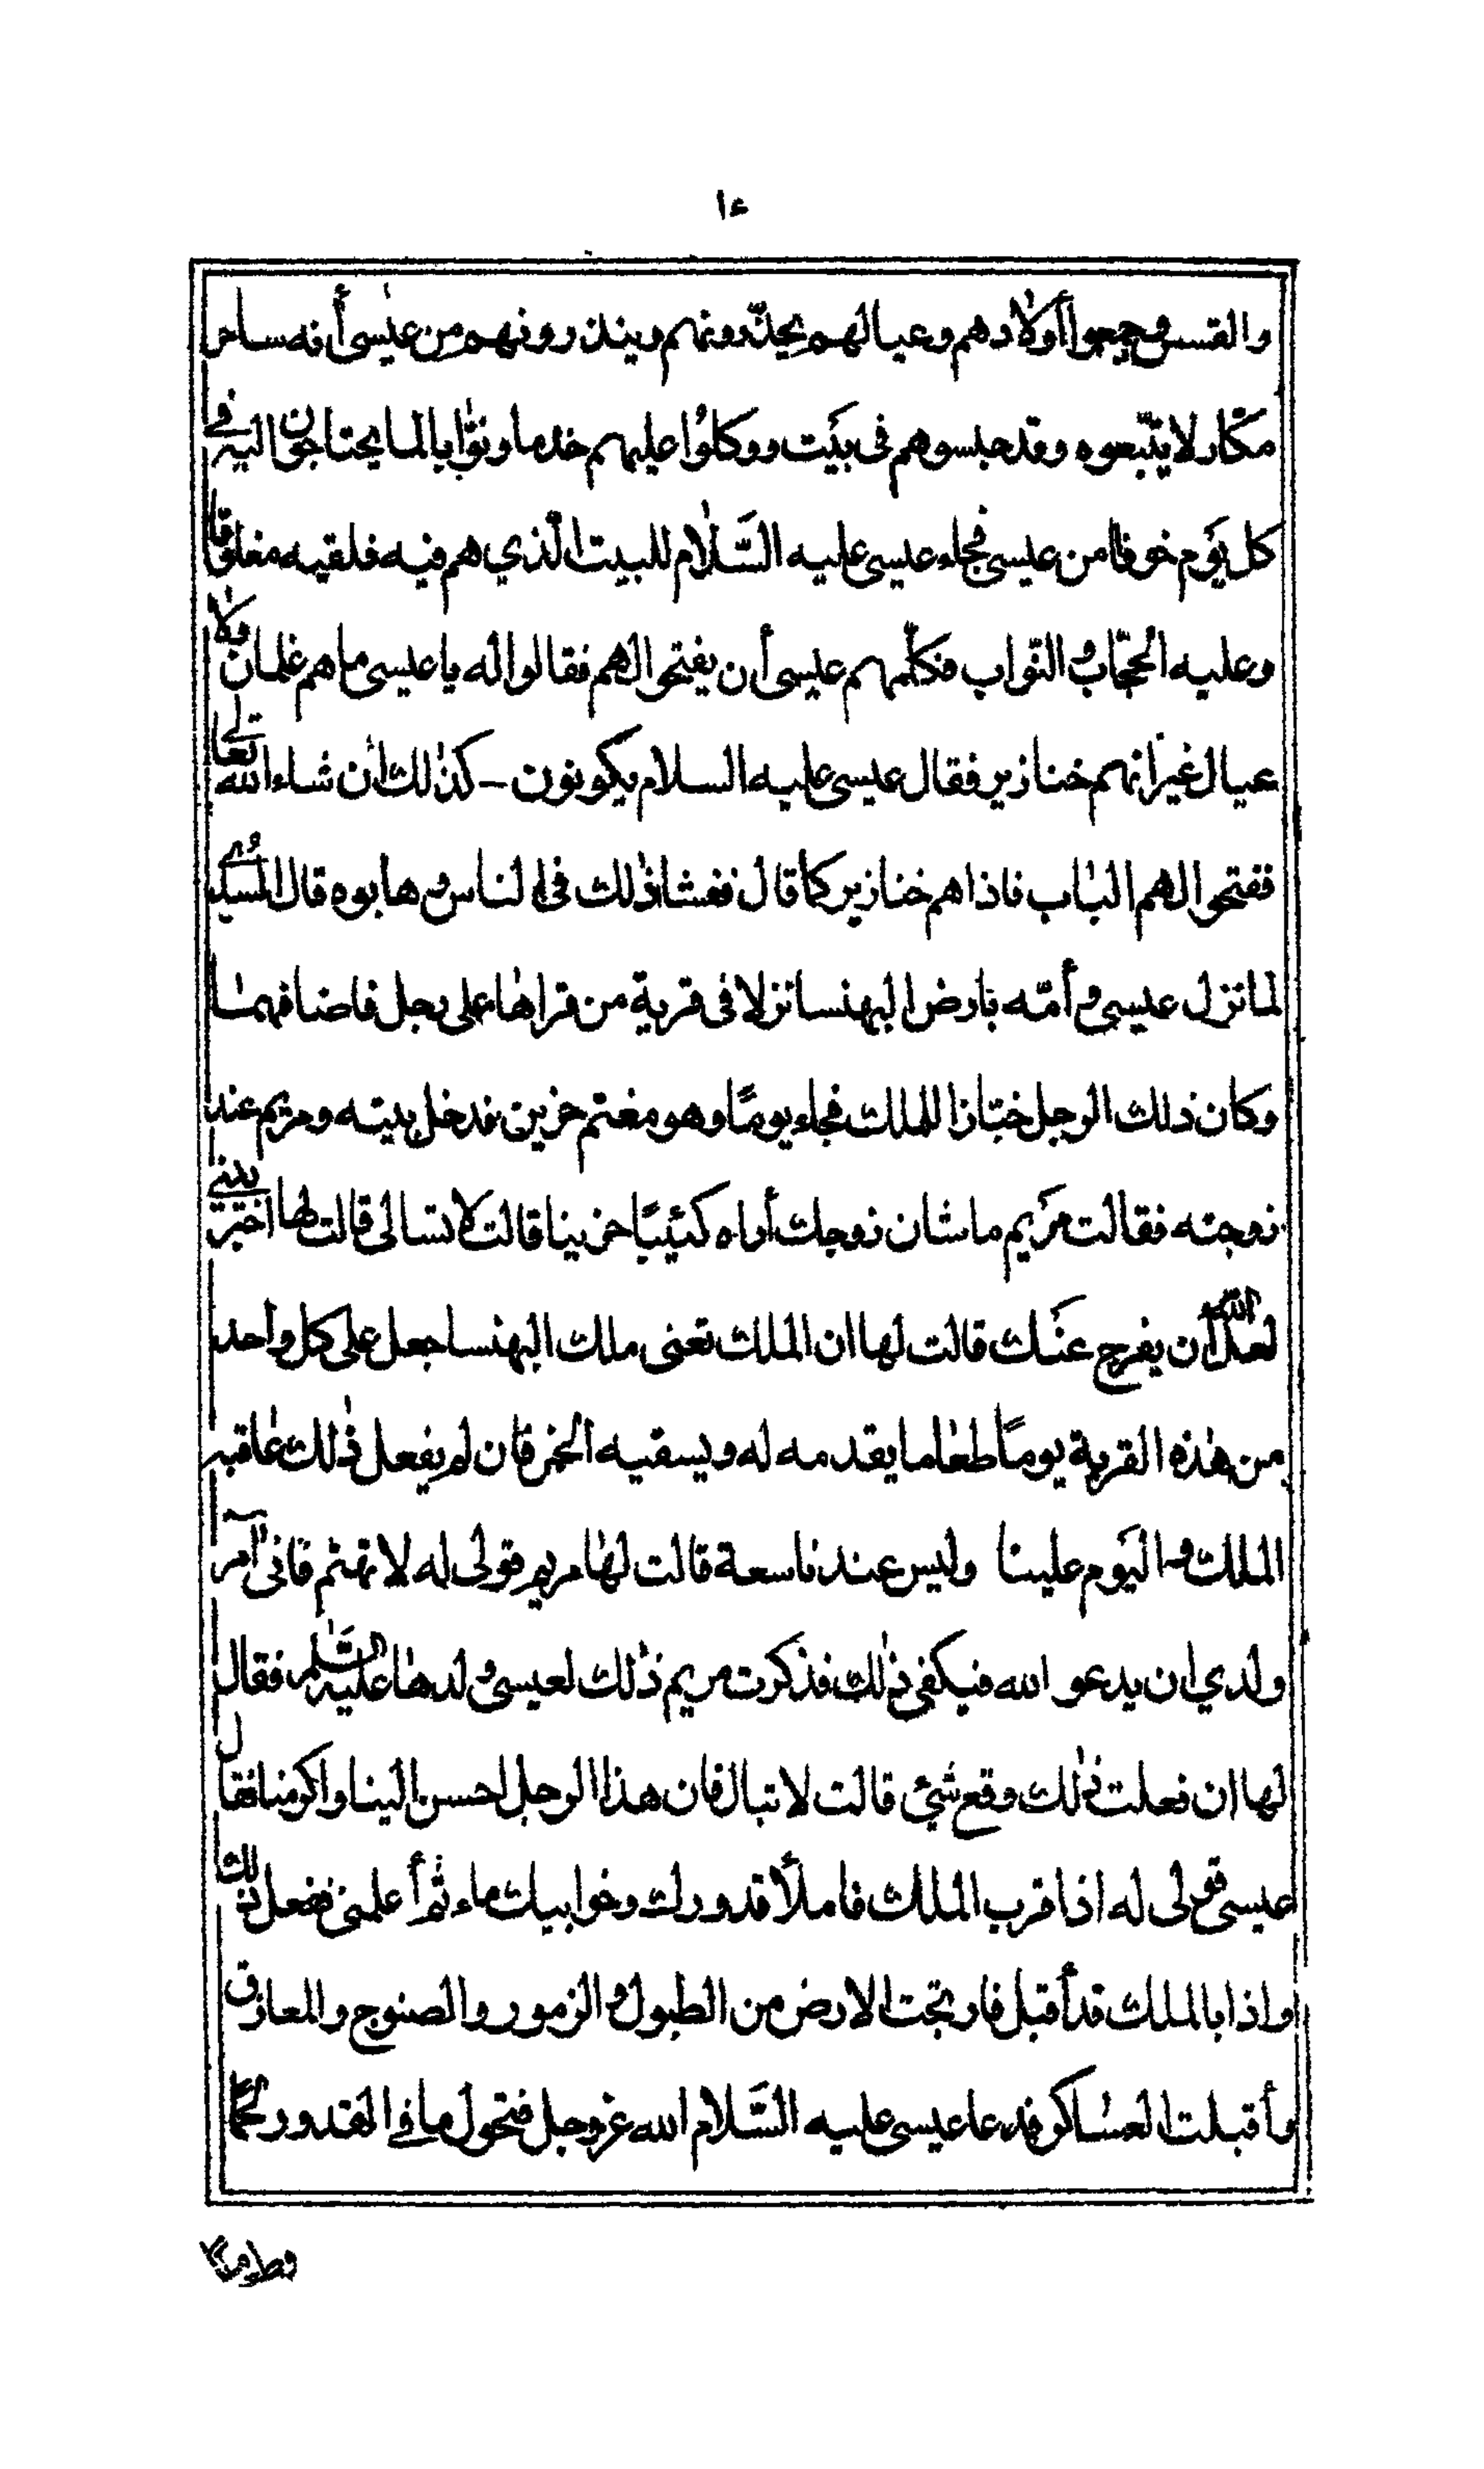 ١٤
والقسس وجمعوا أولادهم وعيالهم يحذّرونهم وينذرونهم من عيسى أنه ساحر
مكّار لا يتّبعوه وقد حبسوهم في بيَت ووكلوُا عليهم خدما ونوّابا لما يحتاجون اليه في
كل يوَم خوفا من عيسى فجاء عيسى عليه السَّلام للبيت الّذي هم فيه فلقيه مغلوقا
وعليه الحُجّاب والنوّاب فكلّمهم عيسى أن يفتحوا لهم فقالوا له يا عيسى ما هم غلمان ولا
عيال غير انهم خنازير فقال عيسى عليه السلام يكونون - كذلك ان شاء الله تعالى
ففتحوا لهم الباب فاذا هم خنازير كما قال ففشا ذلك في الناس وهابوه قال السُدّي
لما نزل عيسى وأمّه بارض البهنسا نزلا في قرية من قراها على رجل فاضافهما
وكان ذلك الرجل خبّازا للملك فجاء يومًا وهو مغتم حزين فدخل بيته ومريم عند
زوجته فقالت مرَيم ما شان زوجك أراه كئيبًا حزينا قالت لا تسالي قالت لها اخبريني
لعل الله أن يفرج عنَك قالت لها ان الملك تعنى ملك البهنسا جعل على كل واحد
من هذه القرية يومًا طعاما يقدمه له ويسقيه الخمر فان لم يفعل ذلك عاقبه
الملك واليَوم علينا وليس عندنا سعة قالت لها مريم قولى له لا تهتم فانى آمر
ولدي ان يدعو الله فيكفى ذلك فذكرت مريم ذلك لعيسى ولدها عليه السَّلم فقال
لها ان فعلت ذلك وقع شئ قالت لا تبال فان هذا الرجل احسن الينا واكرمنا فقال
عيسى قولى له اذا قرب الملك فاملأ قدورك وخوابيك ماء ثم أعلمنى ففعل ذلك
واذا بالملك قد أقبل فارتجت الارض من الطبول والزمور والصنوج والمعازق
وأقبلت العساكر فدعا عيسى عليه السَّلام الله عز وجل فتحول ما في القدور لحمًا